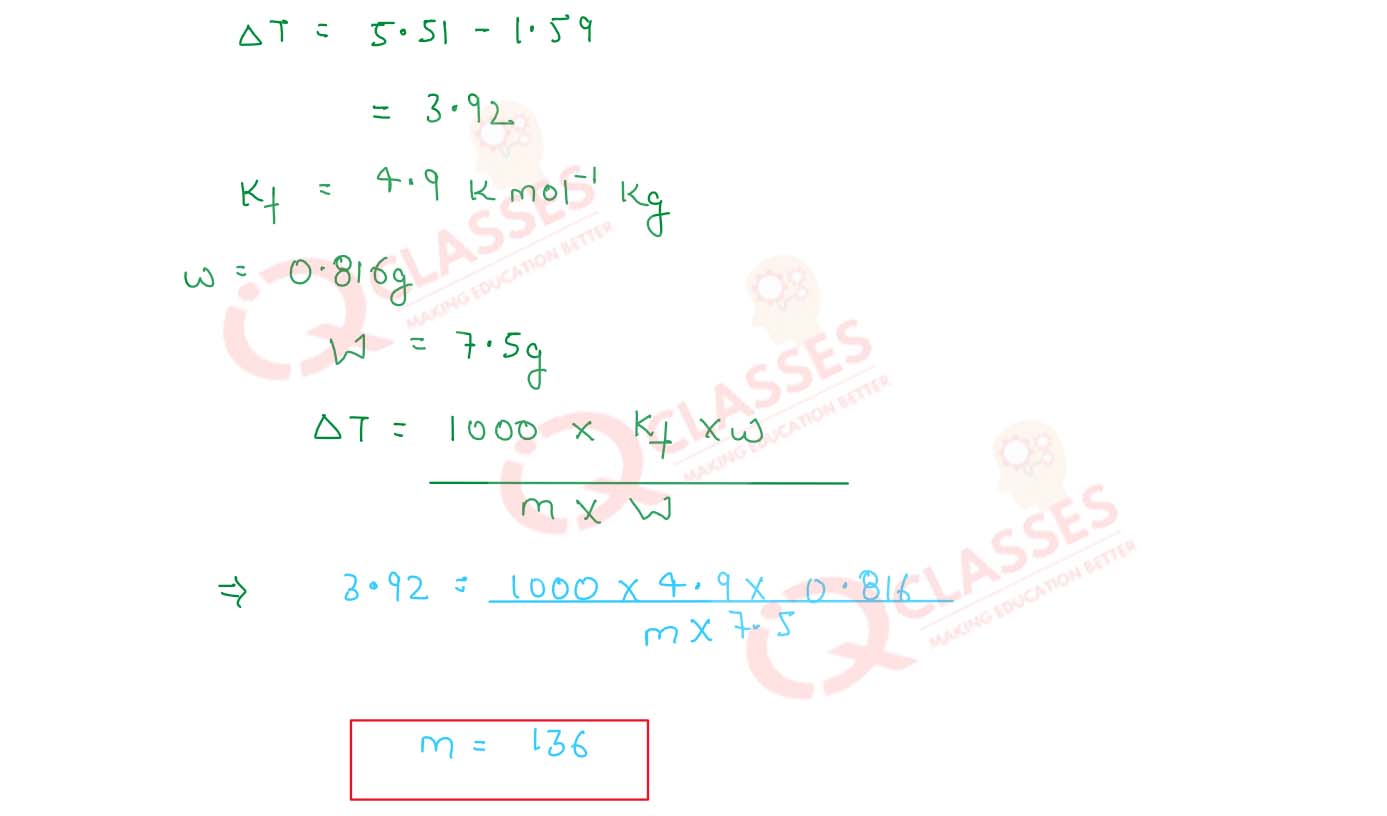 ΔT = 5.51 - 1.59
= 3.92
Kf = 4.9 K mol⁻¹ Kg
w = 0.816g
W = 7.5g
ΔT = 1000 × Kf × w
m × W
⇒ 3.92 = 1000 × 4.9 × 0.816
m × 7.5
m = 136
iQ CLASSES
MAKING EDUCATION BETTER
iQ CLASSES
MAKING EDUCATION BETTER
iQ CLASSES
MAKING EDUCATION BETTER